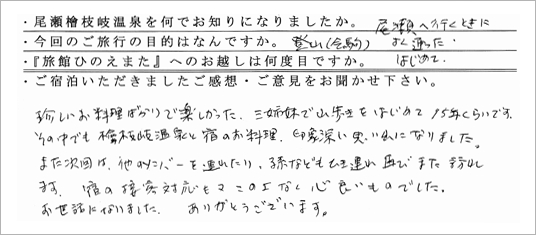 ・尾瀬檜枝岐温泉を何でお知りになりましたか。 尾瀬へ行くときに
・今回のご旅行の目的はなんですか。 登山(会駒) よく通った.
・『旅館ひのえまた』へのお越しは何度目ですか。 はじめて.
・ご宿泊いただきましたご感想・ご意見をお聞かせ下さい。
珍しいお料理ばかりで楽しかった. 三姉妹で山歩きをはじめて15年くらいです.
その中でも檜枝岐温泉と宿のお料理、印象深い思い出になりました.
また次回は、他のメンバーを連れたり、孫などもひき連れ再びまた訪れ
ます. 宿の接客対応もこのよなく心良いものでした.
お世話になりました. ありがとうございます。